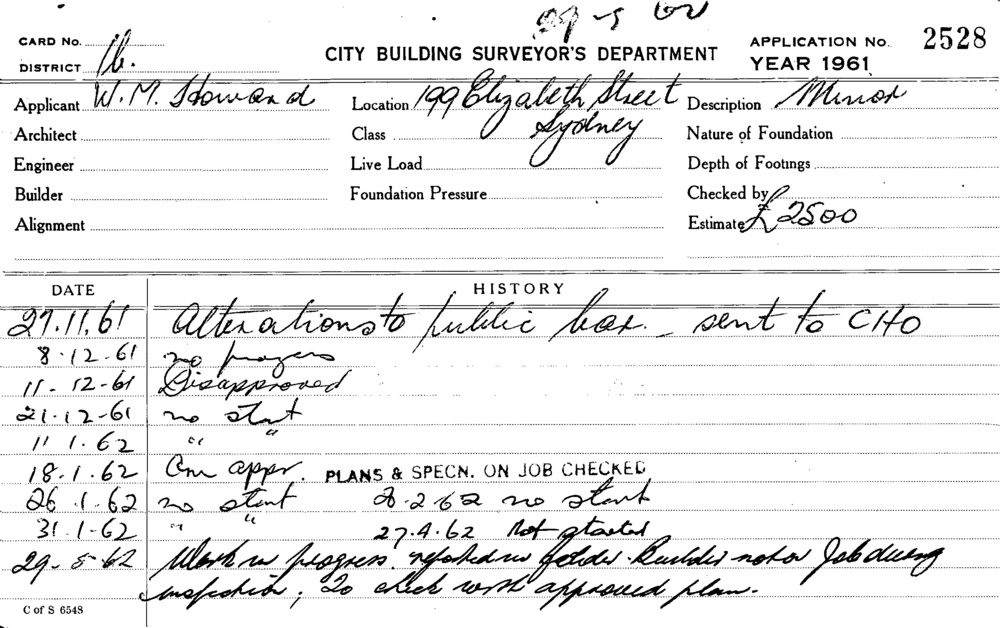 29-5-62
CARD No.
DISTRICT 16.
CITY BUILDING SURVEYOR'S DEPARTMENT
APPLICATION No. 2528
YEAR 1961
Applicant W. M. Howard Location 199 Elizabeth Street Description Minor
Architect Class Sydney Nature of Foundation
Engineer Live Load Depth of Footings
Builder Foundation Pressure Checked by
Alignment Estimate £2500
DATE HISTORY
27.11.61 Alterations to public bar. - sent to CHO
8.12.61 no progress
11-12-61 Disapproved
21-12-61 no start
11 1.62 " "
18.1.62 appr. PLANS & SPECN. ON JOB CHECKED
26.1.62 no start 8-2-62 no start
31.1-62 " " 27.4.62 Not started
29-5-62 Work in progress. reported in folder. Builder not on Job during
inspection; To check with approved plan.
C of S 6548